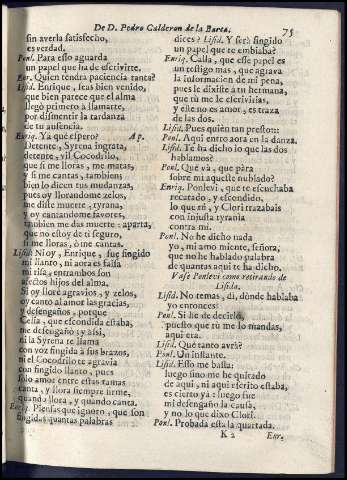 De D. Pedro Calderon de la Barca. 75
sin averla satisfecho,
es verdad.
Ponl. Para esso aguarda
un papel que ha de escrivirte.
Enr. Quien tendra paciencia tanta?
Lisid. Enrique, seas bien venido,
que bien parece que el alma
llegò primero à llamarte,
por desmentir la tardanza
de tu ausencia.
Enriq. Ya què espero? Ap.
Detente, Syrena ingrata,
detente, vil Cocodrilo,
que si me lloras, me matas,
y si me cantas, tambiens
bien lo dicen tus mudanzas,
pues oy llorandome zelos,
me diste muerte, tyrana,
y oy cantandome favores,
tambien me das muerte: aparta,
que no estoy de ti seguro,
si me lloras, ò me cantas.
Lisid. Ni oy, Enrique, fue fingido
mi llanto, ni aora es falsa
mi risa, entrambos son
afectos hijos del alma,
si oy llorè agravios, y zelos,
oy canto al amor las gracias,
y desengaños, porque
Celia, que escondida estaba,
me desengaño; y assi,
ni la Syrena te llama
con voz fingida à sus brazos,
ni el Cocodrilo te agravia
con fingido llanto, pues
solo amor entre estas ramas
canta, y llora siempre firme,
quando llora, y quando canta.
Enriq. Piensas que ignoro, que son
fingidas quantas palabras
dices? Lisid. Y serà fingido
un papel que te embiaba?
Enriq. Calla, que esse papel es
un testigo mas, que agrava
la informacion de mi pena,
pues le dixiste à tu hermana,
que tù me le escrivirias,
y este no es amor, es traza
de las dos.
Lisid. Pues quien tan presto::
Ponl. Aqui entro aora en la danza.
Lisid. Te ha dicho lo que las dos
hablamos?
Ponl. Què và, que pàra
sobre mi aqueste nublado?
Enriq. Ponlevi, que te escuchaba
recatado, y escondido,
lo que tù, y Clori trazabais
con injusta tyrania
contra mi.
Ponl. No he dicho nada
yo, mi amo miente, señora,
que no he hablado palabra
de quantas aqui te ha dicho.
Vase Ponlevi como retirando de
Lisida.
Lisid. No temas, di, dònde hablaba
yo entonces:
Ponl. Si he de decirlo,
puesto que tù me lo mandas,
aqui era.
Lisid. Què tanto avrà?
Ponl. Un instante.
Lisid. Esso me basta:
luego sino me he quitado
de aqui, ni aqui escrito estaba,
es cierto yà: luego fue
mi desengaño la causa,
y no lo que dixo Clori.
Ponl. Probada està la quartada.
K 2 Enr.